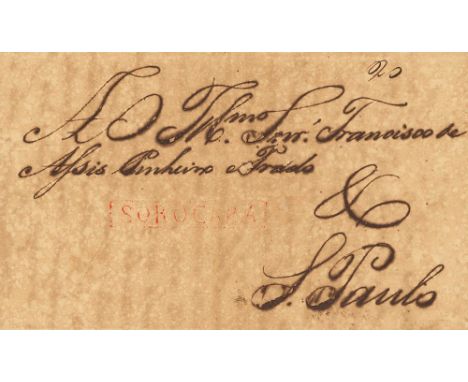 20
A O Illmo Snr. Francisco de
Assis Pinheiro e Prado
&
[SOROCABA]
S. Paulo